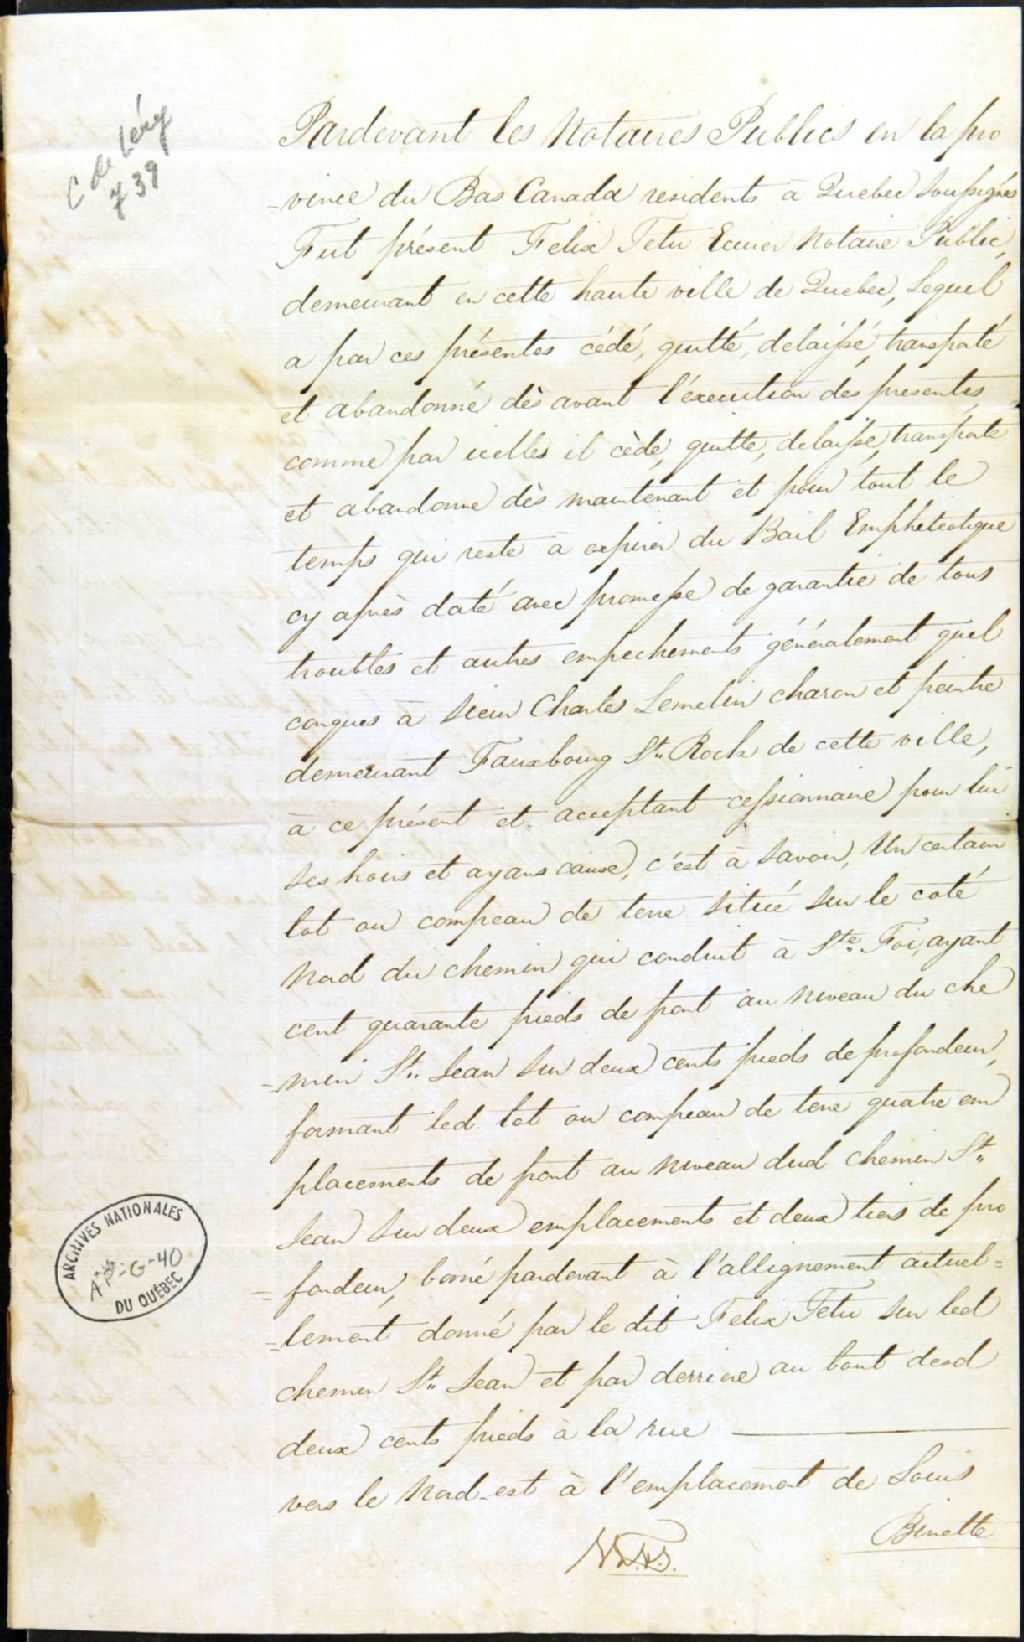 C de Léry
739
Pardevant les Notaires Publics en la pro
=vince du Bas Canada residents à Quebec Soussignés
Fut présent Felix Tetu Ecuier Notaire Public,
demeurant en cette haute ville de Quebec, Lequel
a par ces présentes cédé, quitté, delaissé, transporté
et abandonné dès avant l'éxecution des presentes
comme par icelles il cède, quitte, delaisse, transporte
et abandonne dès maintenant et pour tout le
temps qui reste à expirer du Bail Emphiteotique
cy après daté avec promesse de garantie de tous
troubles et autres empechements généralement quel
conques à Sieur Charles Lemelin charon et peintre
demeurant Fauxbourg St. Roch de cette ville,
à ce présent et acceptant cessionnaire pour lui
ses hoirs et ayans cause, c'est à savoir, Un certain
lot ou compeau de terre situé sur le coté
Nord du chemin qui conduit à Ste. Foi, ayant
cent quarante pieds de front au niveau du che
=min St. Jean sur deux cents pieds de profondeur,
formant led. lot ou compeau de terre quatre em
placements de front au niveau dud chemin St.
Jean sur deux emplacements et deux tiers de pro
=fondeur, borné pardevant à l'allignement actuel=
=lement donné par le dit Felix Tetu sur led
chemin St. Jean et par derriere au bout desd
deux cents pieds à la rue
vers le Nord-est à l'emplacement de Louis
Binette
ARCHIVES NATIONALES
AP-G-40
DU QUÉBEC